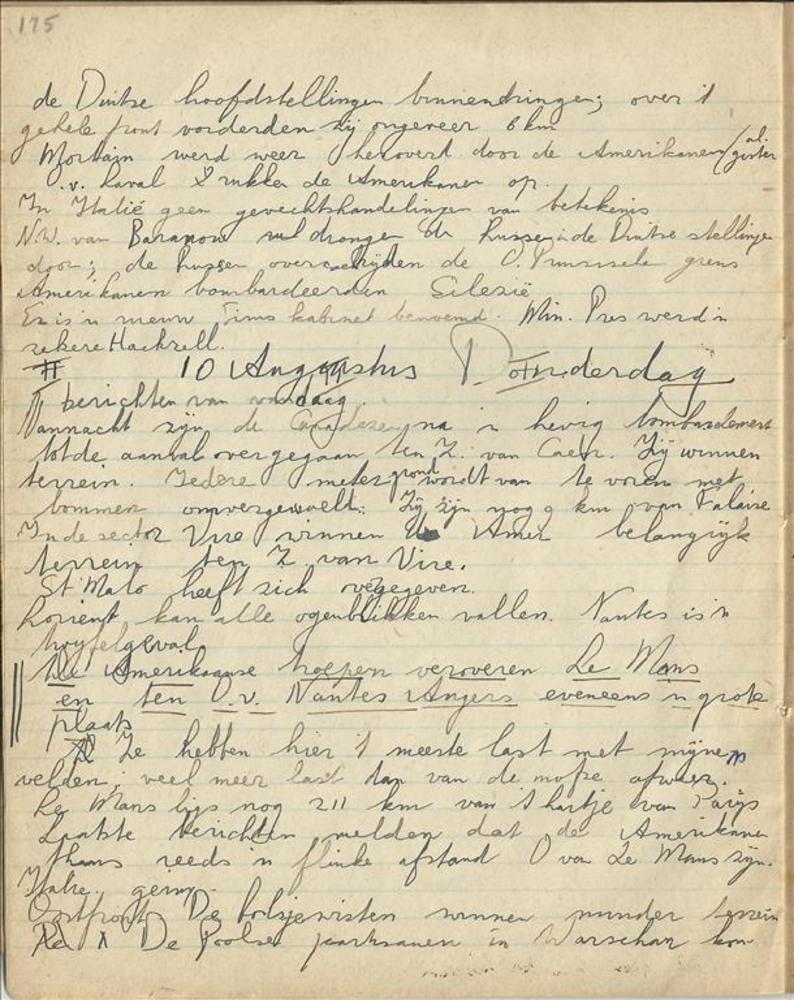 175
de Duitse hoofdstellingen binnendringen; over 't
gehele front vorderden zij ongeveer 6 km
Mortain werd weer heroverd door de Amerikanen (al.
gister
O.v. Laval rukken de Amerikanen op.
In Italië geen gevechtshandelingen van betekenis
N.W. van Baranow drongen de Russen in de Duitse stellingen
door; de Russen overschrijden de O. Pruisische grens
Amerikanen bombardeerden Silezië
Er is 'n nieuw Fins kabinet benoemd. Min. Pres werd 'n
zekere Hackzell.
10 Augustus Donderdag
berichten van vandaag.
Vannacht zijn de Canadezen na 'n hevig bombardement
tot de aanval overgegaan ten Z. van Caen. Zij winnen
terrein. Iedere meter grond wordt van te voren met
bommen omvergewoeld. Zij zijn nog 9 km van Falaise
In de sector Vire winnen de Amer belangrijk
terrein ten Z. van Vire.
St Malo heeft zich overgegeven.
Lorient kan alle ogenblikken vallen. Nantes is 'n
twyfelgeval
De Amerikaanse troepen veroveren Le Mans
en ten O.v. Nantes Angers eveneens 'n grote
plaats
Ze hebben hier 't meeste last met mijnen
velden; veel meer last dan van de mofse afweer.
Le Mans ligt nog 211 km van 't hartje van Parijs
Laatste berichten melden dat de Amerikanen
thans reeds 'n flinke afstand O van Le Mans zijn.
Italie. gering.
Oostfront De bolsjewisten winnen minder terrein
De Poolse partisanen in Warschau kom